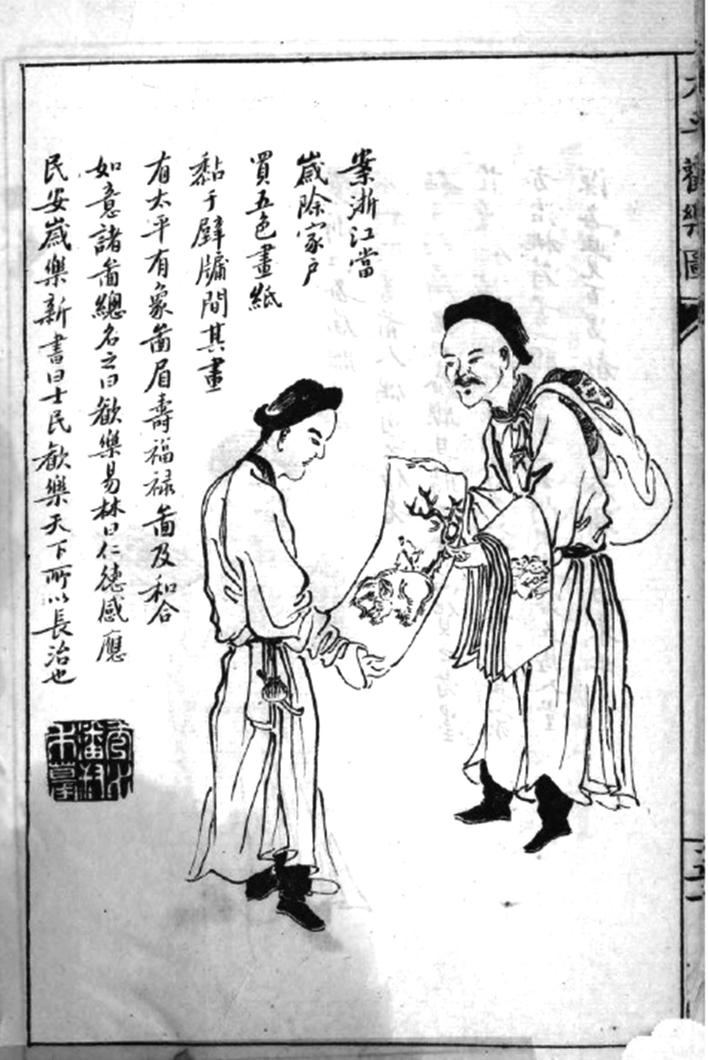 案浙江當
歲除家戶
買五色畫紙
黏于壁牖間其畫
有太平有象啚眉壽福禄啚及和合
如意諸啚總名之曰歡樂易林曰仁德感應
民安歲樂新書曰士民歡樂天下所以長治也
太平歡樂圖